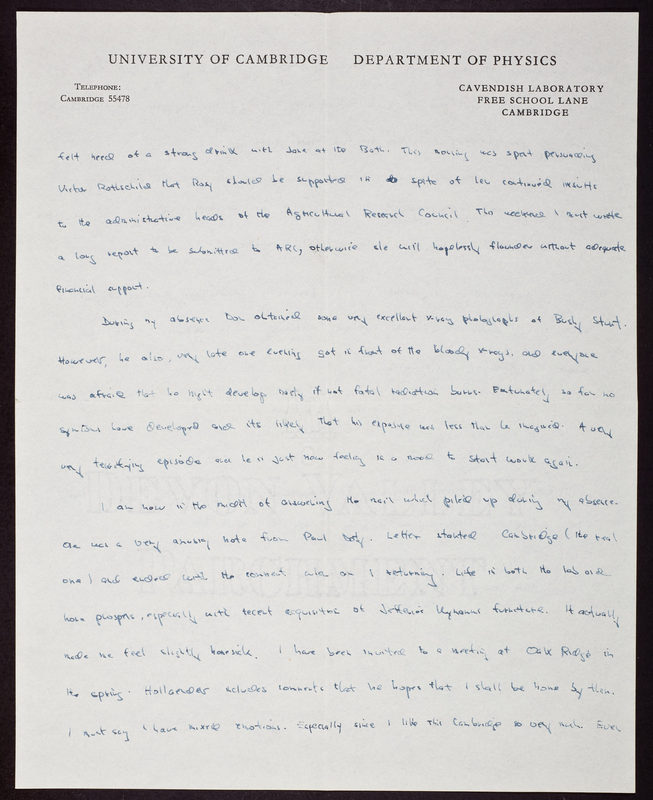 UNIVERSITY OF CAMBRIDGE DEPARTMENT OF PHYSICS
TELEPHONE:
CAMBRIDGE 55478
CAVENDISH LABORATORY
FREE SCHOOL LANE
CAMBRIDGE
felt need of a strong drink with at the Bath. This morning was spent persuading
Victor Rothschild that Rosy should be supported in spite of her continued insults
to the administrative heads of the Agricultural Research Council. This weekend I must write
a long report to be submitted to ARC, otherwise she will hopelessly flounder without adequate
financial support.
During my absence Don obtained some very excellent x-ray photographs of Bushy Stunt.
However, he also, very late one evening got in front of the bloody x-rays, and everyone
was afraid that he might develop nasty if not fatal radiation burns. Fortunately so far no
symptoms have developed and its likely that his exposure was less than he imagined. A very
very terrifying episode and he is just now feeling in a mood to start work again.
I am now in the midst of answering the mail which piled up during my absence.
One was a very amusing note from Paul Doty. Letter started Cambridge (the real
one) and ended with the comment when am I returning. Life in both the lab and
home prospers, especially with recent acquisition of furniture. It actually
made me feel slightly homesick. I have been invited to a meeting at Oak Ridge in
the spring. Hollaender includes comments that he hopes that I shall be home by then.
I must say I have mixed emotions. Especially since I like this Cambridge so very much. Even